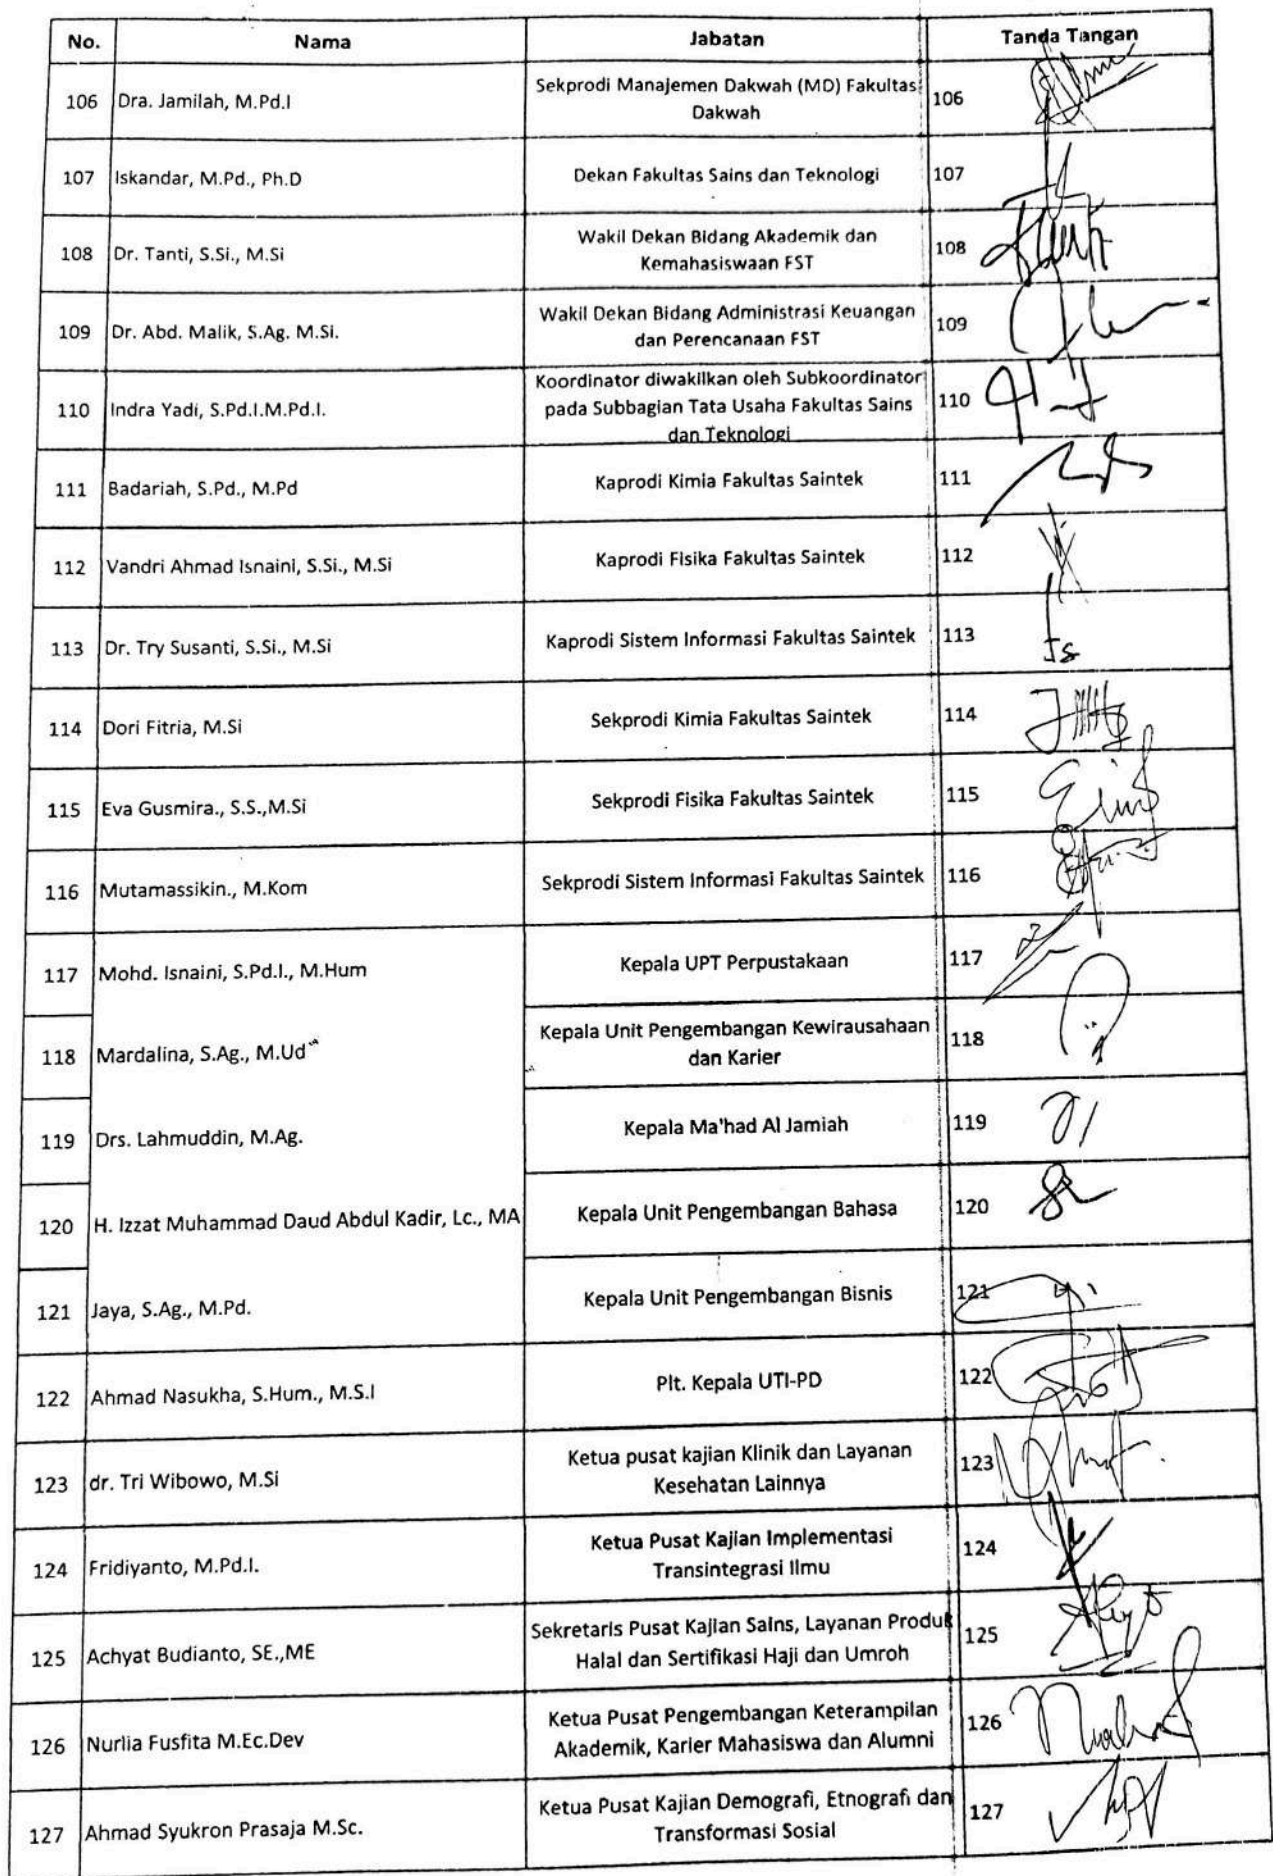 No. Nama Jabatan Tanda Tangan
106 Dra. Jamilah, M.Pd.I Sekprodi Manajemen Dakwah (MD) Fakultas 106
Dakwah
107 Iskandar, M.Pd., Ph.D Dekan Fakultas Sains dan Teknologi 107
108 Dr. Tanti, S.Si., M.Si Wakil Dekan Bidang Akademik dan 108
Kemahasiswaan FST
109 Dr. Abd. Malik, S.Ag. M.Si. Wakil Dekan Bidang Administrasi Keuangan 109
dan Perencanaan FST
Koordinator diwakilkan oleh Subkoordinator
110 Indra Yadi, S.Pd.I.M.Pd.I. pada Subbagian Tata Usaha Fakultas Sains 110
dan Teknologi
111 Badariah, S.Pd., M.Pd Kaprodi Kimia Fakultas Saintek 111
112 Vandri Ahmad Isnaini, S.Si., M.Si Kaprodi Fisika Fakultas Saintek 112
113 Dr. Try Susanti, S.Si., M.Si Kaprodi Sistem Informasi Fakultas Saintek 113
114 Dori Fitria, M.Si Sekprodi Kimia Fakultas Saintek 114
115 Eva Gusmira., S.S.,M.Si Sekprodi Fisika Fakultas Saintek 115
116 Mutamassikin., M.Kom Sekprodi Sistem Informasi Fakultas Saintek 116
117 Mohd. Isnaini, S.Pd.I., M.Hum Kepala UPT Perpustakaan 117
118 Mardalina, S.Ag., M.Ud Kepala Unit Pengembangan Kewirausahaan 118
dan Karier
119 Drs. Lahmuddin, M.Ag. Kepala Ma'had Al Jamiah 119
120 H. Izzat Muhammad Daud Abdul Kadir, Lc., MA Kepala Unit Pengembangan Bahasa 120
121 Jaya, S.Ag., M.Pd. Kepala Unit Pengembangan Bisnis 121
122 Ahmad Nasukha, S.Hum., M.S.I Plt. Kepala UTI-PD 122
123 dr. Tri Wibowo, M.Si Ketua pusat kajian Klinik dan Layanan 123
Kesehatan Lainnya
124 Fridiyanto, M.Pd.I. Ketua Pusat Kajian Implementasi 124
Transintegrasi Ilmu
125 Achyat Budianto, SE.,ME Sekretaris Pusat Kajian Sains, Layanan Produk 125
Halal dan Sertifikasi Haji dan Umroh
126 Nurlia Fusfita M.Ec.Dev Ketua Pusat Pengembangan Keterampilan 126
Akademik, Karier Mahasiswa dan Alumni
127 Ahmad Syukron Prasaja M.Sc. Ketua Pusat Kajian Demografi, Etnografi dan 127
Transformasi Sosial